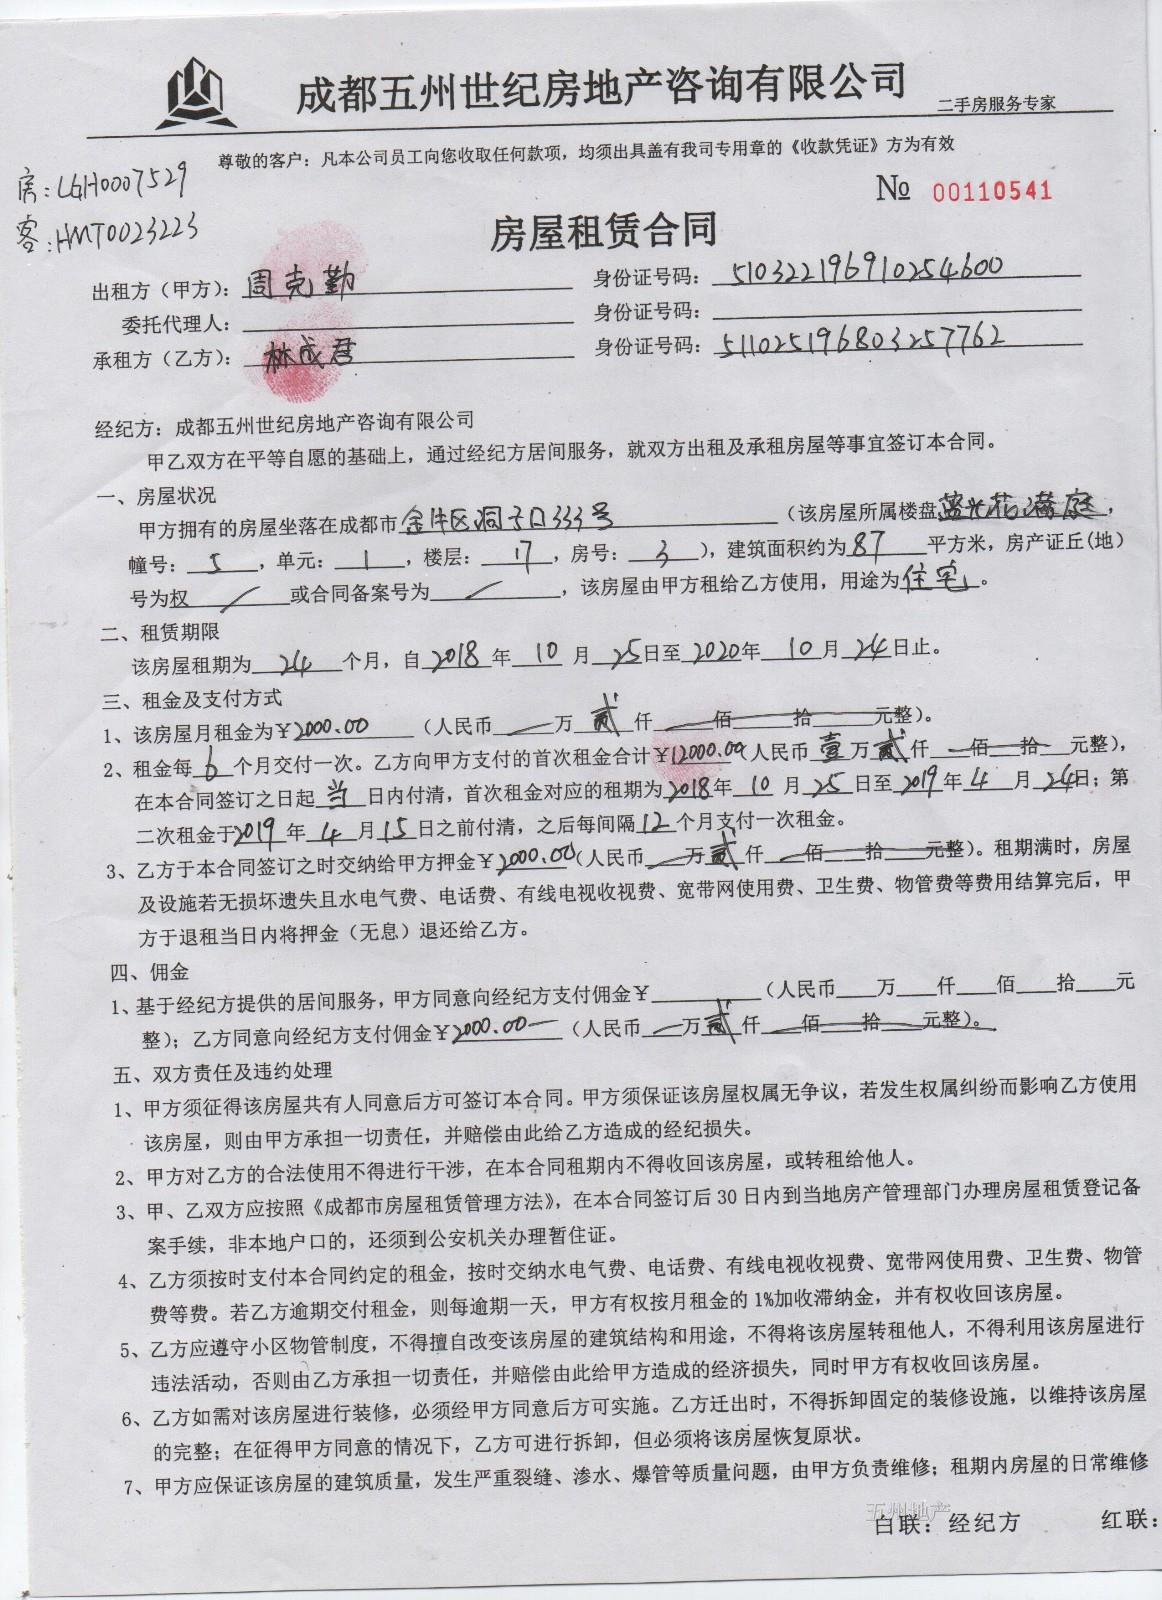 成都五州世纪房地产咨询有限公司
二手房服务专家
尊敬的客户：凡本公司员工向您收取任何款项，均须出具盖有我司专用章的《收款凭证》方为有效
房：LGH0007529
客：HMT0023223
№ 00110541
房屋租赁合同
出租方（甲方）：周克勤 身份证号码：510322196910254600
委托代理人： 身份证号码：
承租方（乙方）：林成君 身份证号码：511025196803257762
经纪方：成都五州世纪房地产咨询有限公司
甲乙双方在平等自愿的基础上，通过经纪方居间服务，就双方出租及承租房屋等事宜签订本合同。
一、房屋状况
甲方拥有的房屋坐落在成都市金牛区洞子口333号（该房屋所属楼盘蓝光花满庭，
幢号：5，单元：1，楼层：17，房号：3），建筑面积约为87平方米，房产证丘(地)
号为权/或合同备案号为/，该房屋由甲方租给乙方使用，用途为住宅。
二、租赁期限
该房屋租期为24个月，自2018年10月25日至2020年10月24日止。
三、租金及支付方式
1、该房屋月租金为￥2000.00（人民币一万贰仟佰拾元整）。
2、租金每6个月交付一次。乙方向甲方支付的首次租金合计￥12000.00（人民币壹万贰仟佰拾元整），
在本合同签订之日起当日内付清，首次租金对应的租期为2018年10月25日至2019年4月24日；第
二次租金于2019年4月15日之前付清，之后每间隔12个月支付一次租金。
3、乙方于本合同签订之时交纳给甲方押金￥2000.00（人民币一万贰仟佰拾元整）。租期满时，房屋
及设施若无损坏遗失且水电气费、电话费、有线电视收视费、宽带网使用费、卫生费、物管费等费用结算完后，甲
方于退租当日内将押金（无息）退还给乙方。
四、佣金
1、基于经纪方提供的居间服务，甲方同意向经纪方支付佣金￥（人民币万仟佰拾元
整）；乙方同意向经纪方支付佣金￥2000.00（人民币一万贰仟佰拾元整）。
五、双方责任及违约处理
1、甲方须征得该房屋共有人同意后方可签订本合同。甲方须保证该房屋权属无争议，若发生权属纠纷而影响乙方使用
该房屋，则由甲方承担一切责任，并赔偿由此给乙方造成的经纪损失。
2、甲方对乙方的合法使用不得进行干涉，在本合同租期内不得收回该房屋，或转租给他人。
3、甲、乙双方应按照《成都市房屋租赁管理方法》，在本合同签订后30日内到当地房产管理部门办理房屋租赁登记备
案手续，非本地户口的，还须到公安机关办理暂住证。
4、乙方须按时支付本合同约定的租金，按时交纳水电气费、电话费、有线电视收视费、宽带网使用费、卫生费、物管
费等费。若乙方逾期交付租金，则每逾期一天，甲方有权按月租金的1%加收滞纳金，并有权收回该房屋。
5、乙方应遵守小区物管制度，不得擅自改变该房屋的建筑结构和用途，不得将该房屋转租他人，不得利用该房屋进行
违法活动，否则由乙方承担一切责任，并赔偿由此给甲方造成的经济损失，同时甲方有权收回该房屋。
6、乙方如需对该房屋进行装修，必须经甲方同意后方可实施。乙方迁出时，不得拆卸固定的装修设施，以维持该房屋
的完整；在征得甲方同意的情况下，乙方可进行拆卸，但必须将该房屋恢复原状。
7、甲方应保证该房屋的建筑质量，发生严重裂缝、渗水、爆管等质量问题，由甲方负责维修；租期内房屋的日常维修
五州地产
白联：经纪方 红联：